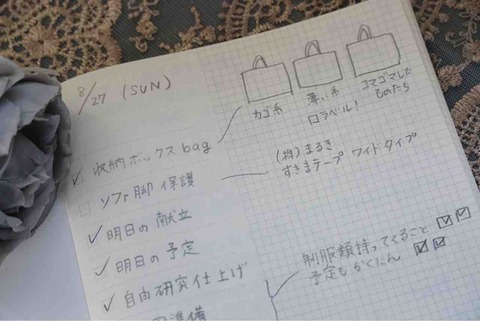 8/27 (SUN)
カゴ系
薄い系
□ラベル!
コマゴマした
ものたち
✓ 収納ボックスbag
□ ソファ脚 保護
(株)まるき
すきまテープ ワイドタイプ
✓ 明日の献立
✓ 明日の予定
✓ 自由研究仕上げ
準備
制服類持ってくること ☑☑
予定もかくにん ☑☑